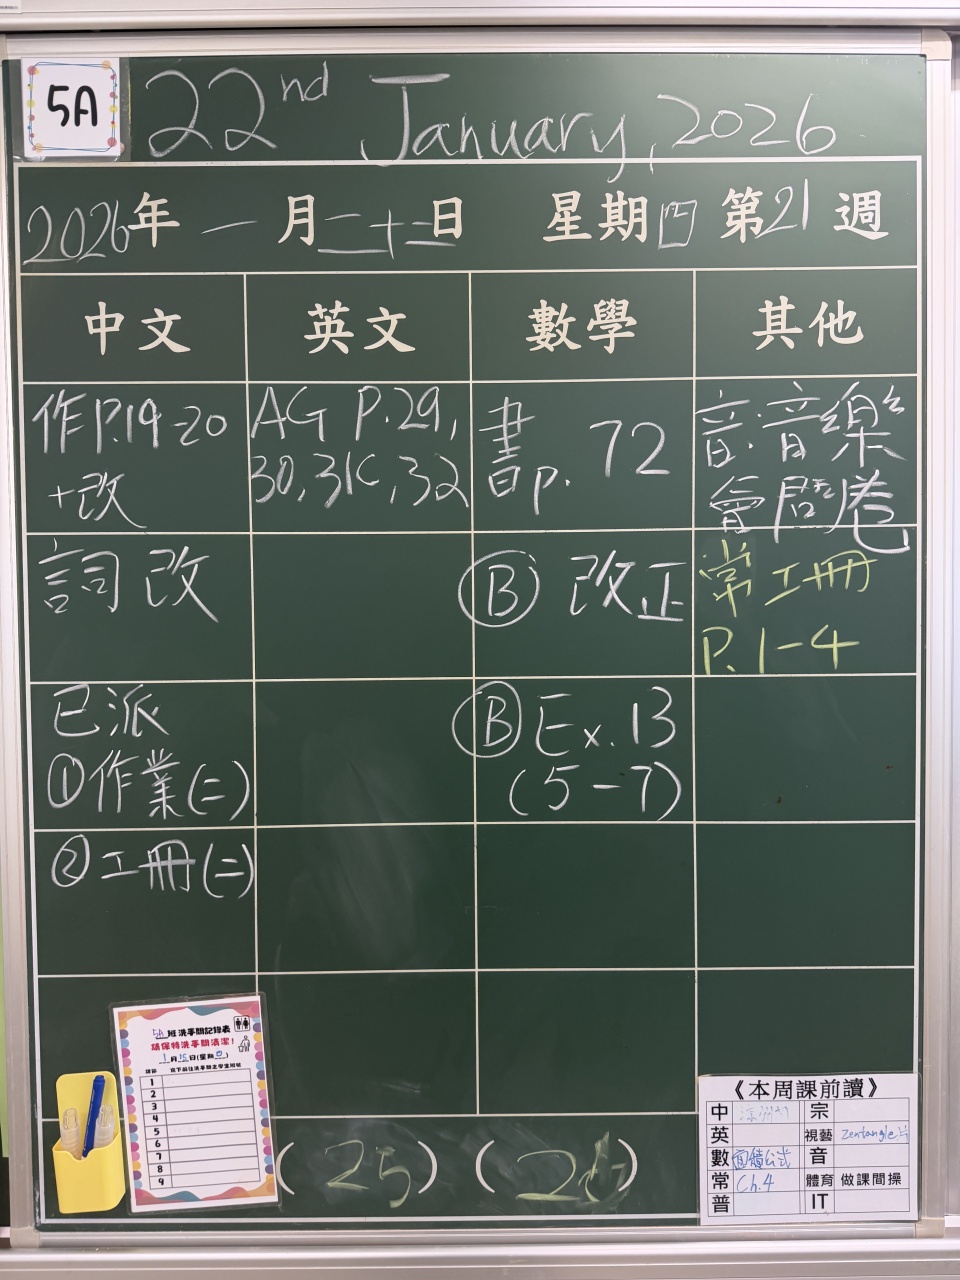 5A
22nd January, 2026
2026年一月二十二日 星期四 第21週
中文 英文 數學 其他
作P.19-20
+改
AG P.29,
30,31C,32
書p. 72
音:音樂
會問卷
詞改
Ⓑ 改正
常工冊
P.1-4
已派
①作業(二)
Ⓑ Ex.13
(5-7)
②工冊(二)
5A班洗手間記錄表
請保持洗手間清潔!
1月15日(星期四)
1
2
3
4
5
6
7
8
9
(25)
《本周課前讀》
中 宗
英 視藝 Zentangle
數 面積公式 音
常 Ch.4 體育 做課間操
普 IT